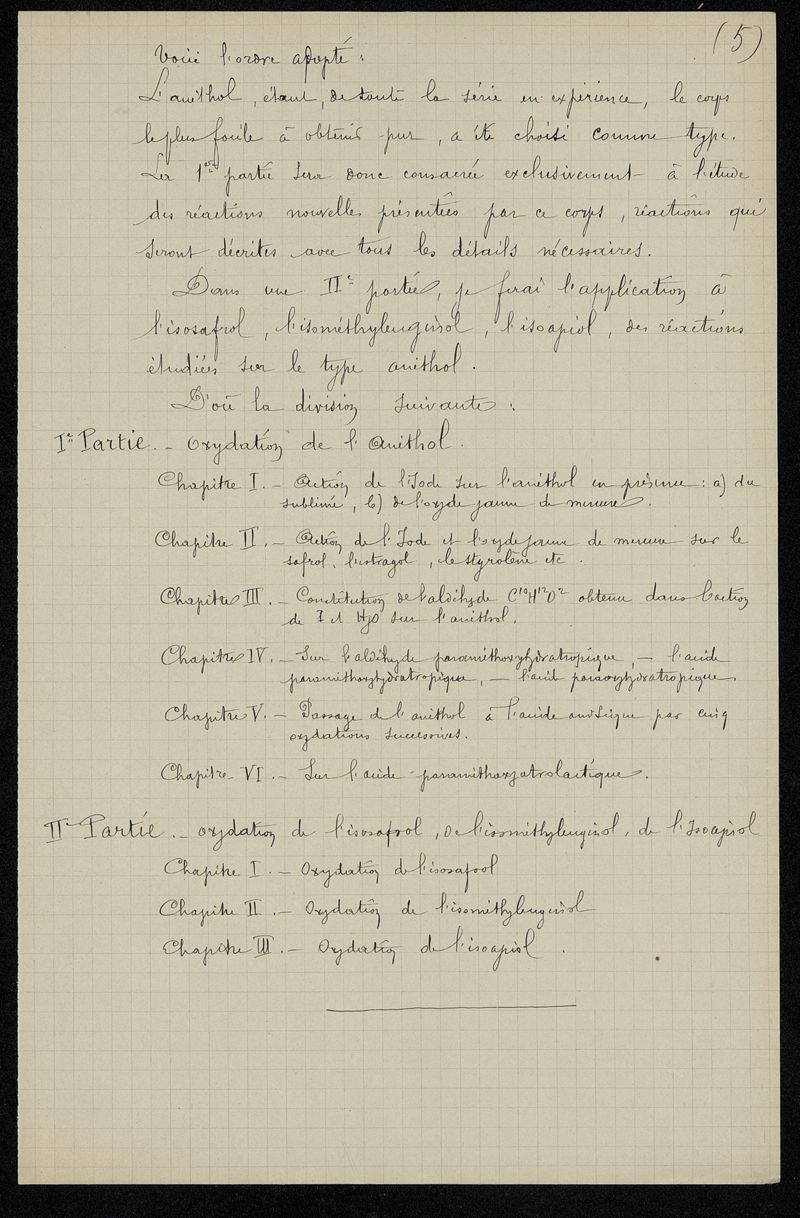 (5)
Voici l'ordre adopté :
L'anéthol, étant, de toute la série en expérience, le corps
le plus facile à obtenir pur, a été choisi comme type.
La 1ère partie sera donc consacrée exclusivement à l'étude
des réactions nouvelles présentées par ce corps, réactions qui
seront décrites avec tous les détails nécessaires.
Dans une IIe partie, je ferai l'application à
l'isosafrol, l'isométhyleugénol, l'isoapiol, des réactions
étudiées sur le type anéthol.
D'où la division suivante :
Ie Partie. - Oxydation de l'Anéthol.
Chapitre I. - Action de l'Iode sur l'anéthol en présence : a) du
sublimé, b) de l'oxyde jaune de mercure.
Chapitre II. - Action de l'Iode et l'oxyde jaune de mercure sur le
safrol, l'estragol, le styrolène etc.
Chapitre III. - Constitution de l'aldéhyde C¹⁰H¹²O² obtenu dans l'action
de I et HgO sur l'anéthol.
Chapitre IV. - Sur l'aldéhyde paraméthoxyhydratropique, - l'acide
paraméthoxyhydratropique, - l'acide paraoxyhydratropique.
Chapitre V. - Passage de l'anéthol à l'acide anisique par cinq
oxydations successives.
Chapitre VI. - Sur l'acide paraméthoxyatrolactique.
IIe Partie. - oxydation de l'isosafrol, de l'isométhyleugénol, de l'Isoapiol
Chapitre I. - Oxydation de l'isosafrol
Chapitre II. - Oxydation de l'isométhyleugénol
Chapitre III. - Oxydation de l'isoapiol.